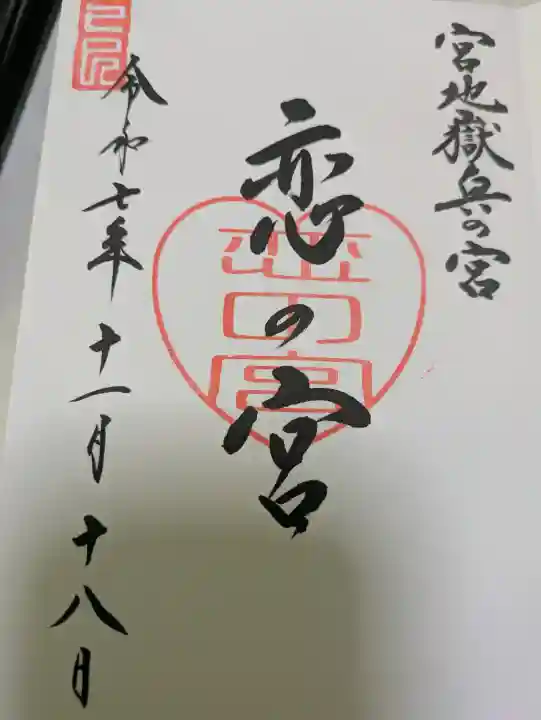 宮地嶽 兵の宮
恋の宮
恋の宮
令和七年 十一月 十八日